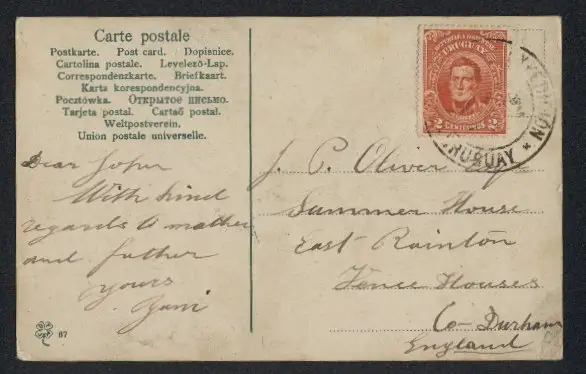 Carte postale
Postkarte. Post card. Dopisnice.
Cartolina postale. Levelező-Lap.
Correspondenzkarte. Briefkaart.
Karta korespondencyjna.
Pocztówka. Открытое письмо.
Tarjeta postal. Cartaõ postal.
Weltpostverein.
Union postale universelle.
Dear
With kind
regards to mother
and father
yours
67
REPUBLICA ORIENTAL
URUGUAY
2 CENTESIMOS 2
URUGUAY *
J. P. Oliver Esq
Summer House
East Rainton
Fence Houses
Co- Durham
England